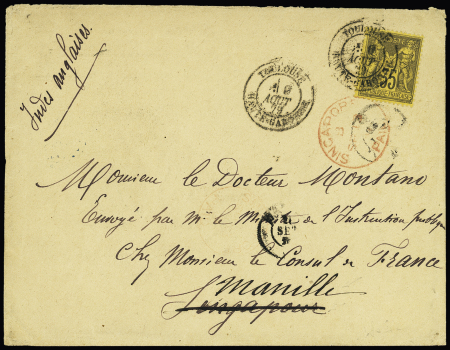 Indes anglaises.
TOULOUSE
HTE-GARONNE
AOUT
79
TOULOUSE
35
SINGAPORE
PAID
Monsieur le Docteur Montano
Envoyé par Mr le Mi de l'Instruction publique
SEP
Chez Monsieur le Consul de France
Manille
Singapour